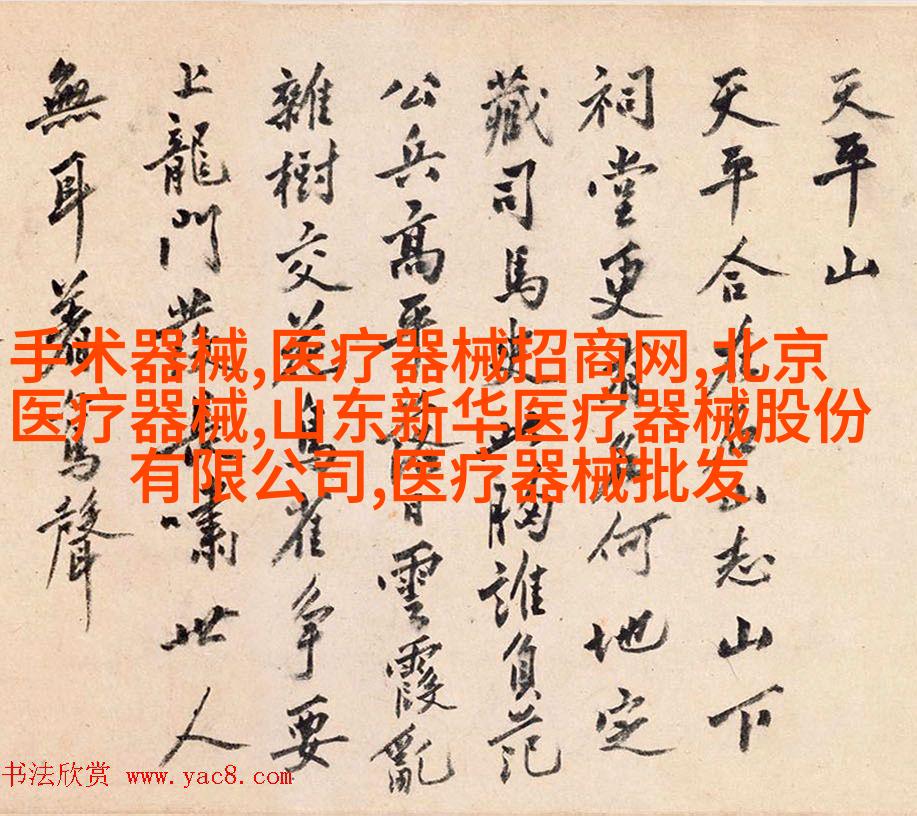 天平山
天平合名山志山下
祠堂更何地定
藏司馬史此胸誰負范
公兵高平皆雲霞亂
雜樹交鳥雀争要
上龍門長嘯世人
無耳着鳥聲
手术器械,医疗器械招商网,北京
医疗器械,山东新华医疗器械股份
有限公司,医疗器械批发
书法欣赏 www.yac8.com